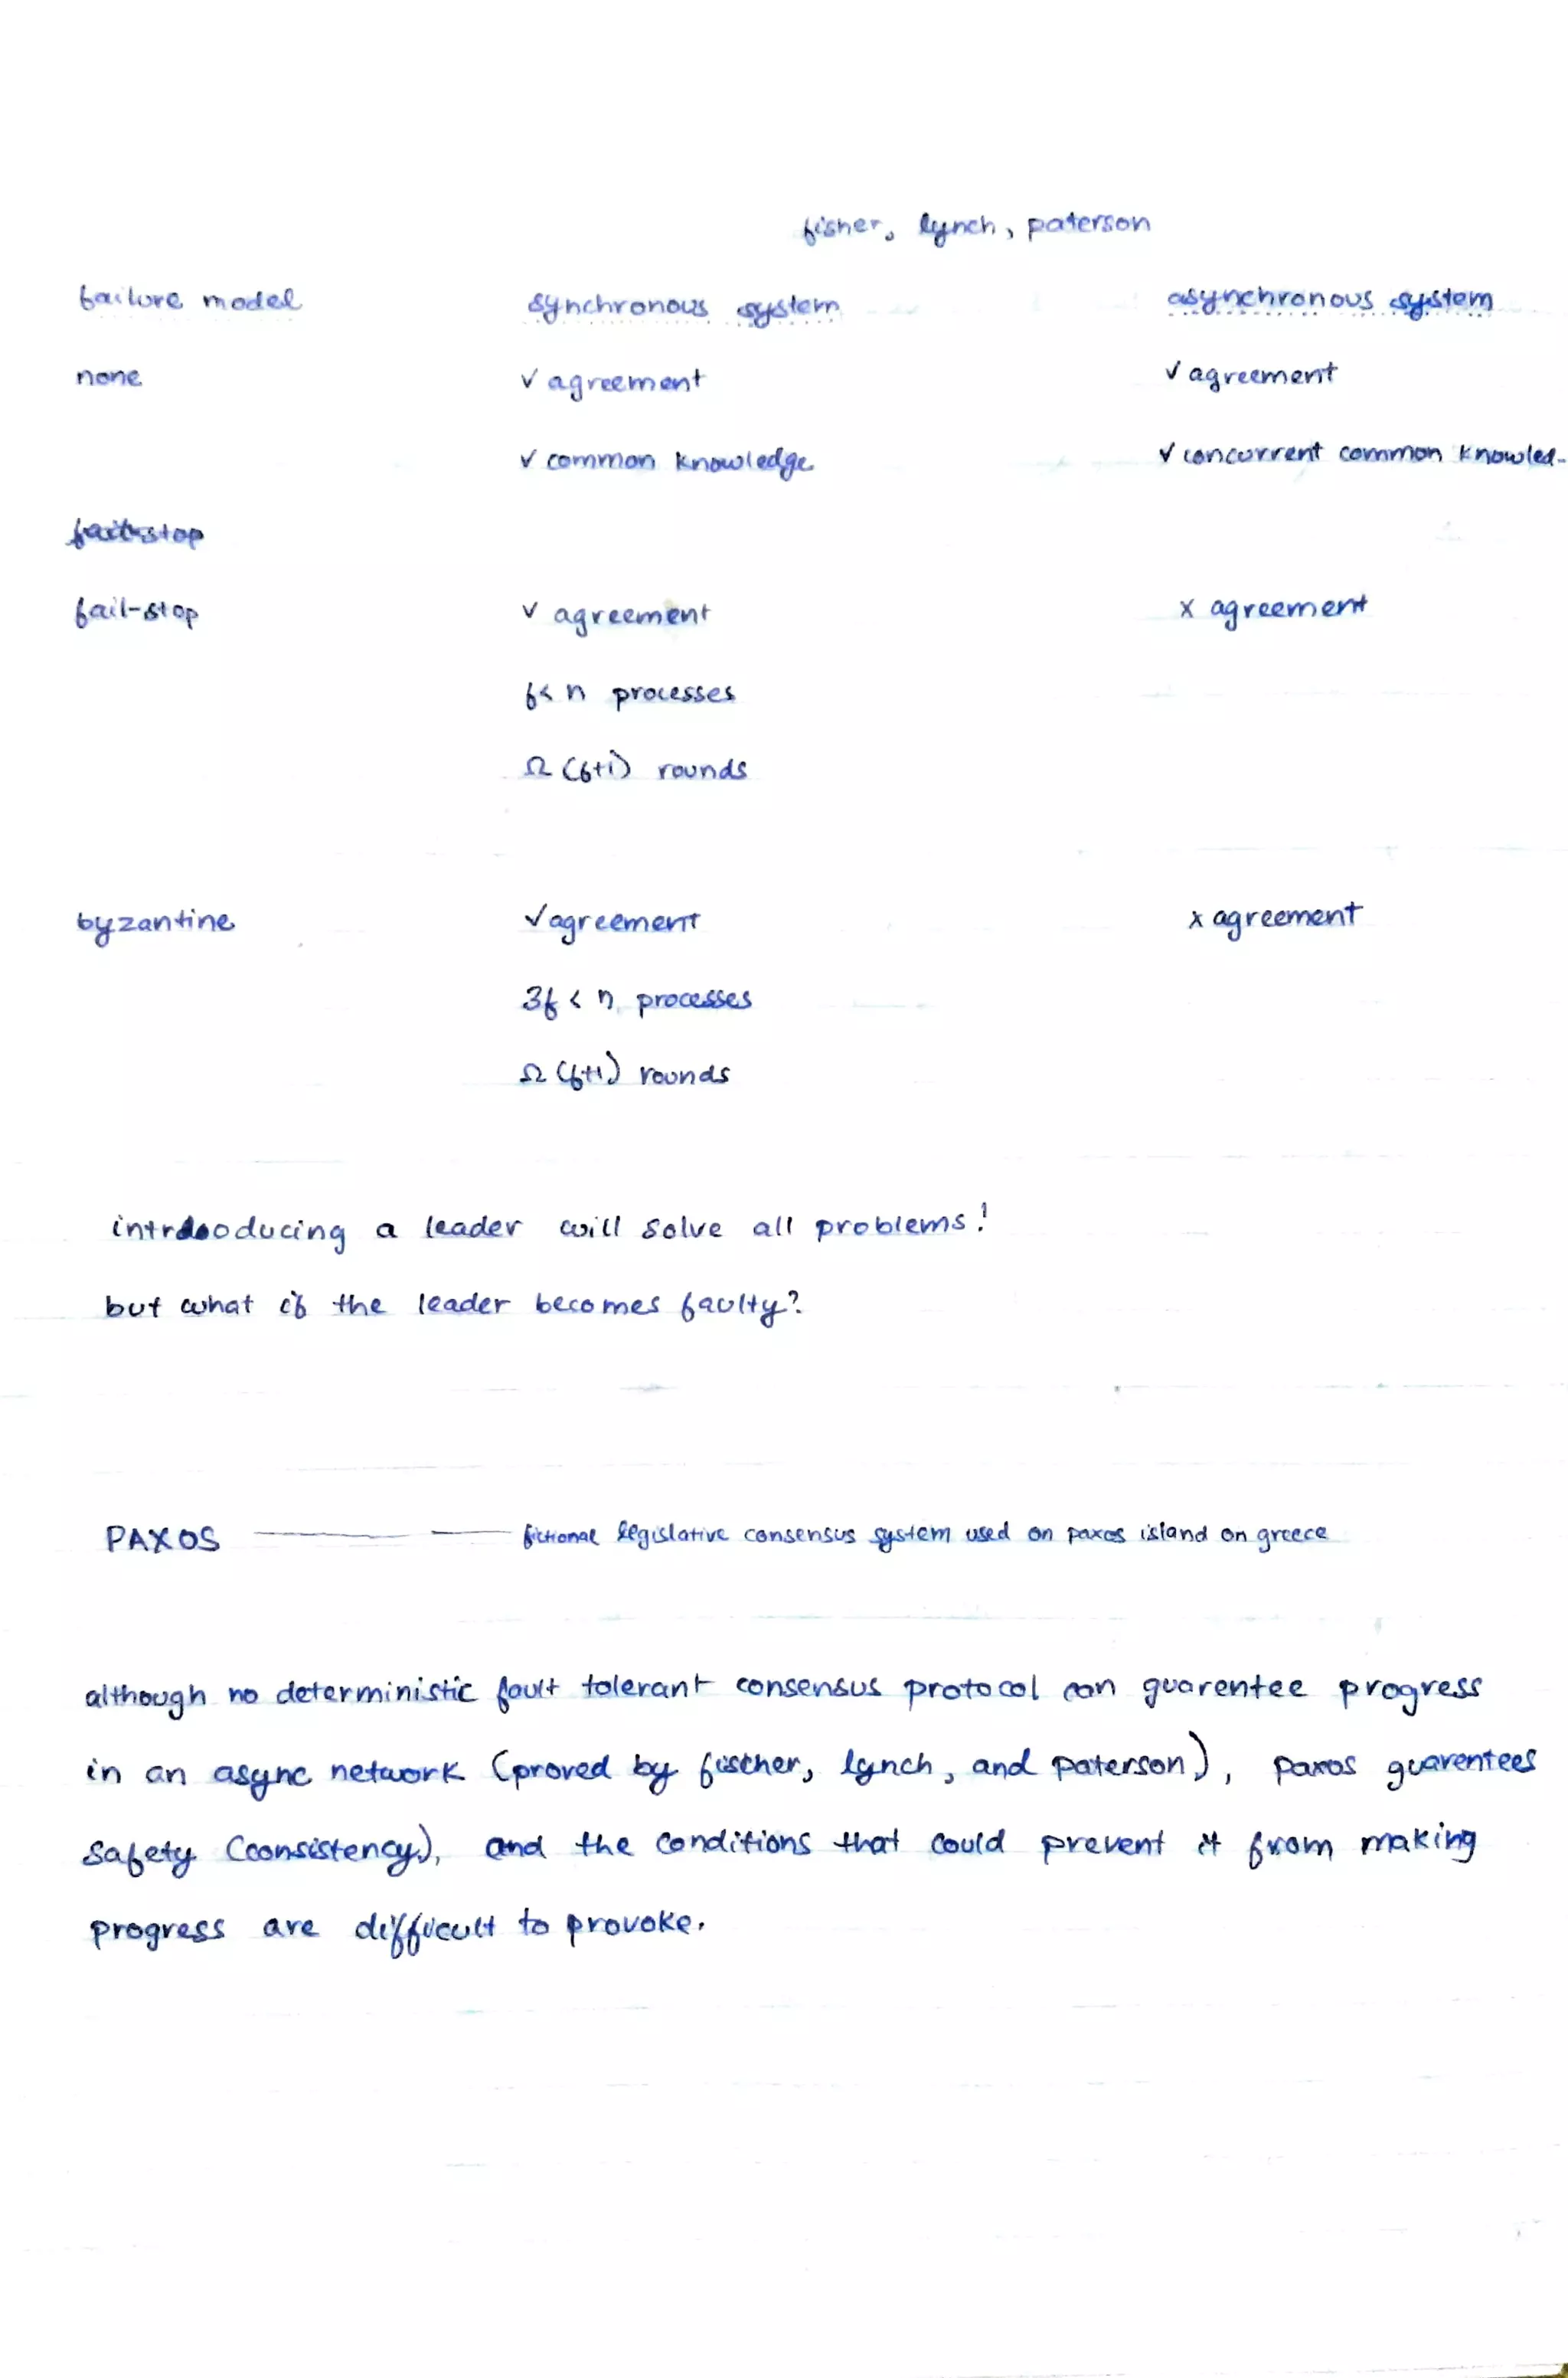 fisher, lynch, paterson
failure model synchronous system asynchronous system
none ✓ agreement ✓ agreement
✓ common knowledge ✓ concurrent common knowled-
failstop
fail-stop ✓ agreement x agreement
f< n processes
Ω (f+1) rounds
byzantine ✓ agreement x agreement
3f < n processes
Ω (f+1) rounds
introducing a leader will solve all problems!
but what if the leader becomes faulty?
PAXOS —— fictional legislative consensus system used on paxos island on greece
although no deterministic fault tolerant consensus protocol can guarentee progress
in an async network (proved by fischer, lynch, and paterson), paxos guarentees
safety (consistency), and the conditions that could prevent it from making
progress are difficult to provoke.